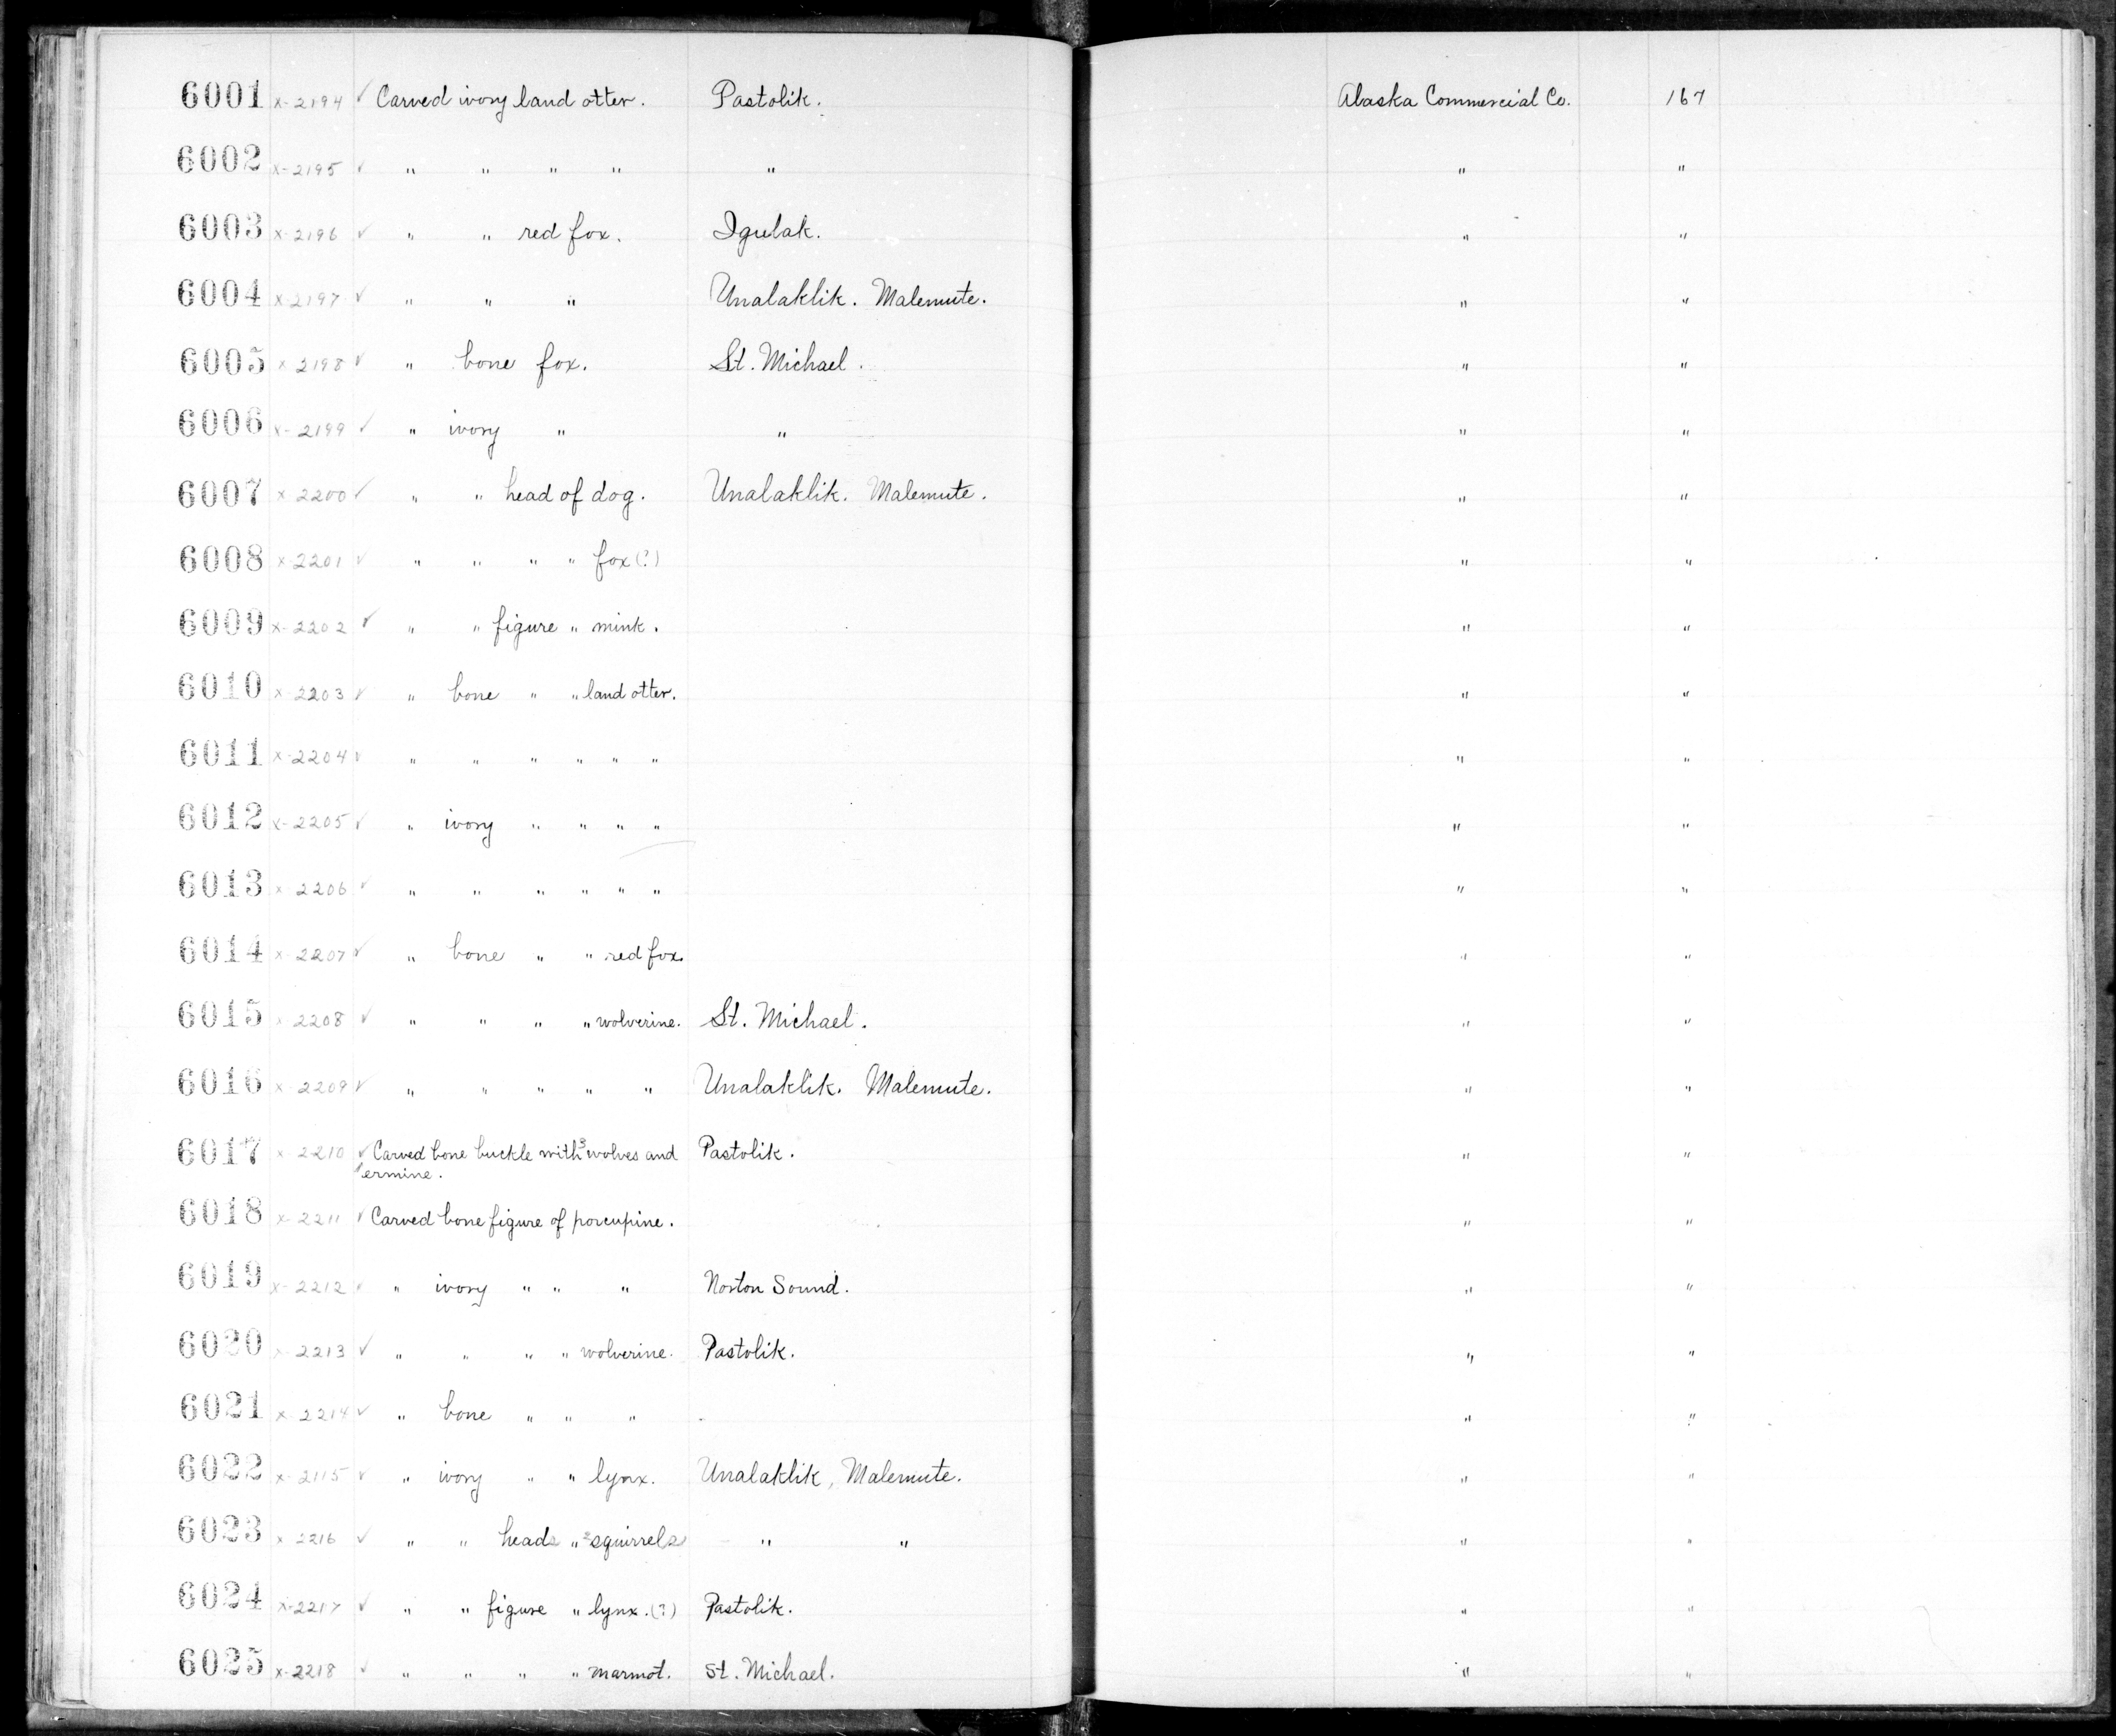 6001 x-2194 ✓ Carved ivory land otter. Pastolik. Alaska Commercial Co. 167
6002 x-2195 ✓ " " " " " " "
6003 x-2196 ✓ " " red fox. Igulak. " "
6004 x-2197 ✓ " " " Unalaklik. Malemute. " "
6005 x-2198 ✓ " bone fox. St. Michael. " "
6006 x-2199 ✓ " ivory " " " "
6007 x-2200 ✓ " " head of dog. Unalaklik. Malemute. " "
6008 x-2201 ✓ " " " " fox (?) " "
6009 x-2202 ✓ " " figure " mink. " "
6010 x-2203 ✓ " bone " " land otter. " "
6011 x-2204 ✓ " " " " " " " "
6012 x-2205 ✓ " ivory " " " " " "
6013 x-2206 ✓ " " " " " " " "
6014 x-2207 ✓ " bone " " red fox. " "
6015 x-2208 ✓ " " " " wolverine. St. Michael. " "
6016 x-2209 ✓ " " " " " Unalaklik. Malemute. " "
6017 x-2210 ✓ Carved bone buckle with 3 wolves and Pastolik. " "
ermine.
6018 x-2211 ✓ Carved bone figure of porcupine. " "
6019 x-2212 ✓ " ivory " " " Norton Sound. " "
6020 x-2213 ✓ " " " " wolverine. Pastolik. " "
6021 x-2214 ✓ " bone " " " " "
6022 x-2115 ✓ " ivory " " lynx. Unalaklik, Malemute. " "
6023 x-2216 ✓ " " heads " 2 squirrels " " " "
6024 x-2217 ✓ " " figure " lynx. (?) Pastolik. " "
6025 x-2218 ✓ " " " " marmot. St. Michael. " "